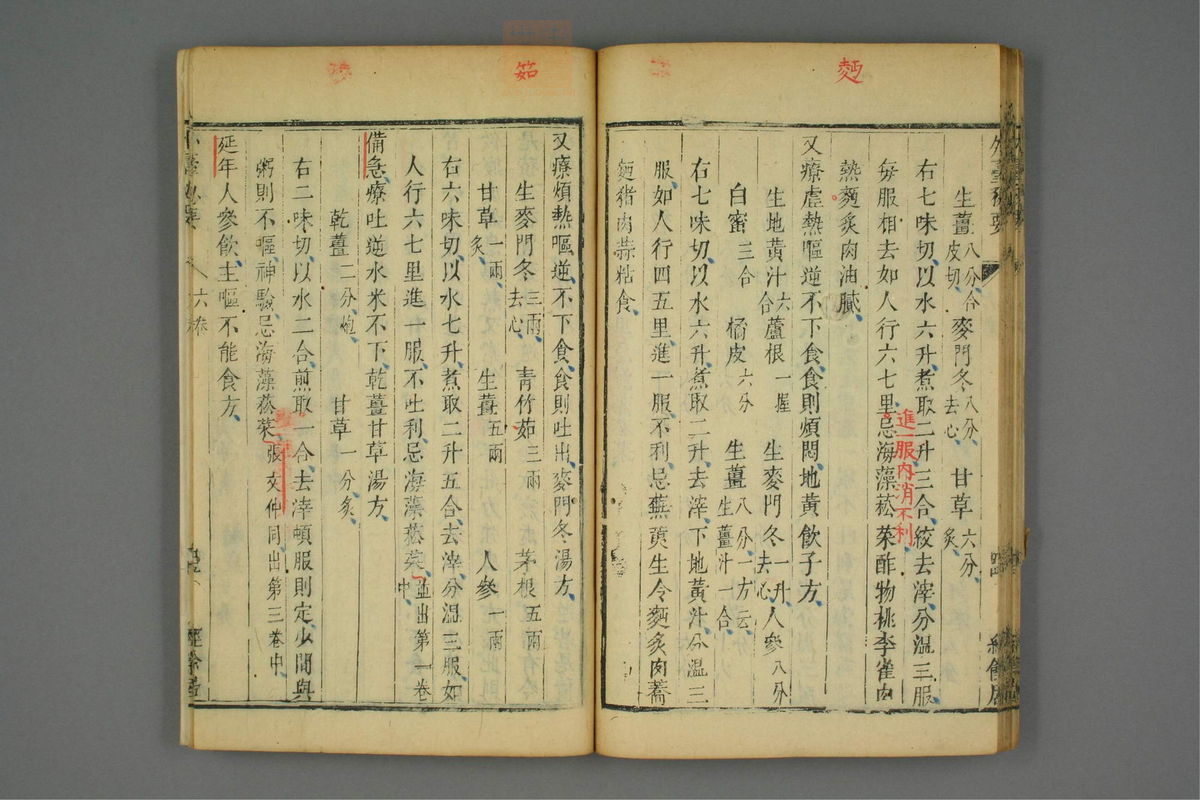 麪
外臺秘要
生薑 八分合皮切 麥門冬 八分去心 甘草 六分炙
右七味切以水六升煮取二升三合絞去滓分温三服
每服相去如人行六七里忌海藻菘菜酢物桃李雀肉
進一服内消不利
熱麪炙肉油膩
又療虛熱嘔逆不下食食則煩悶地黃飲子方
生地黃汁 六合 蘆根 一握 生麥門冬 一升去心 人參 八分
白蜜 三合 橘皮 六分 生薑 八分一方云生薑汁一合
右七味切以水六升煮取二升去滓下地黃汁分温三
服如人行四五里進一服不利忌蕪荑生令麪炙肉蕎
麪猪肉蒜粘食
茹
又療煩熱嘔逆不下食食則吐出麥門冬湯方
生麥門冬 三兩去心 青竹茹 三兩 茅根 五兩
甘草 一兩炙 生薑 五兩 人參 一兩
右六味切以水七升煮取二升五合去滓分温三服如
人行六七里進一服不吐利忌海藻菘菜 並出第一卷中
備急療吐逆水米不下乾薑甘草湯方
乾薑 二分炮 甘草 一分炙
右二味切以水二合煎取一合去滓頓服則定少間與
粥則不嘔神驗忌海藻菘菜 張文仲同出第三卷中
延年人參飲主嘔不能食方
六卷